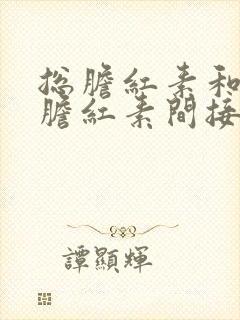 总膽紅素和
膽紅素間接
譚顯輝